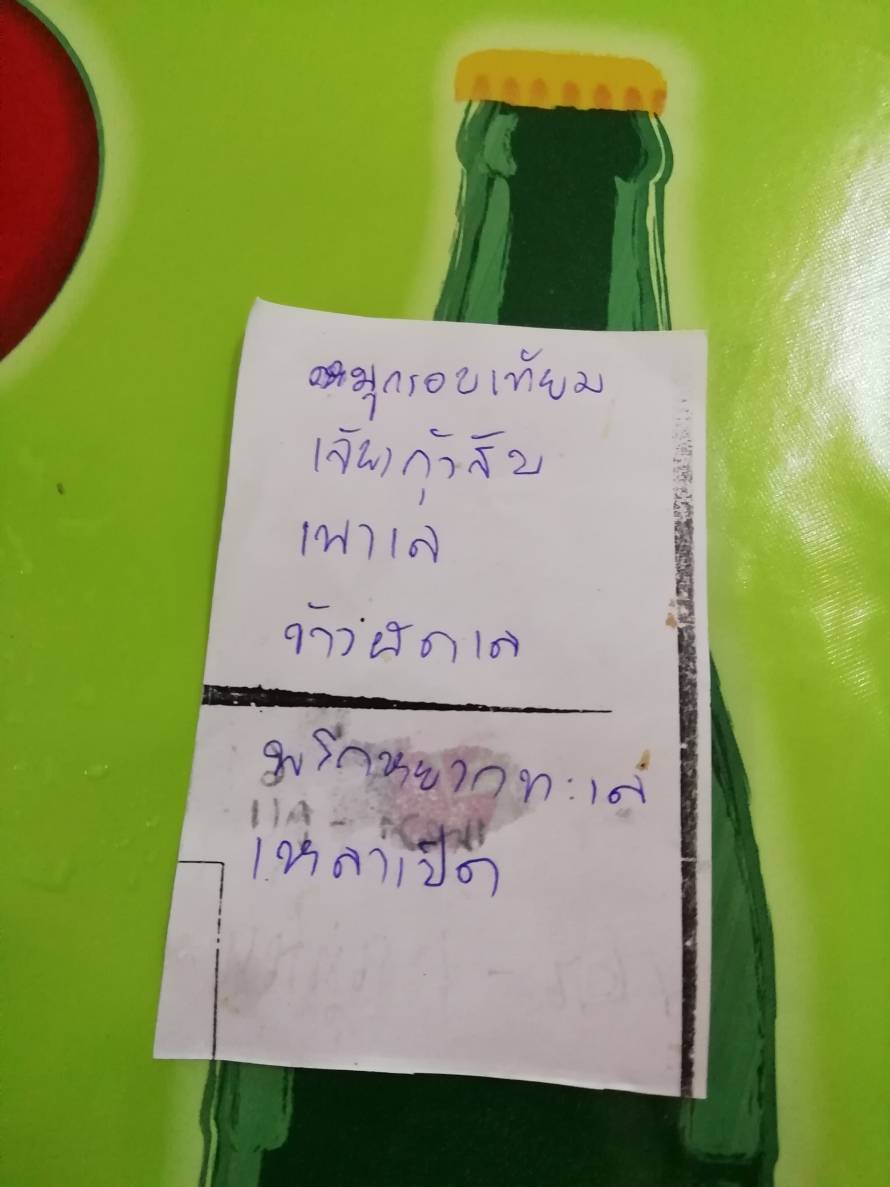 หมุกรอบเทียม
เจียกุ้งสับ
เพาเล
ข้าวผัดเล
พริกหยวกทะเล
เหลาเป็ด